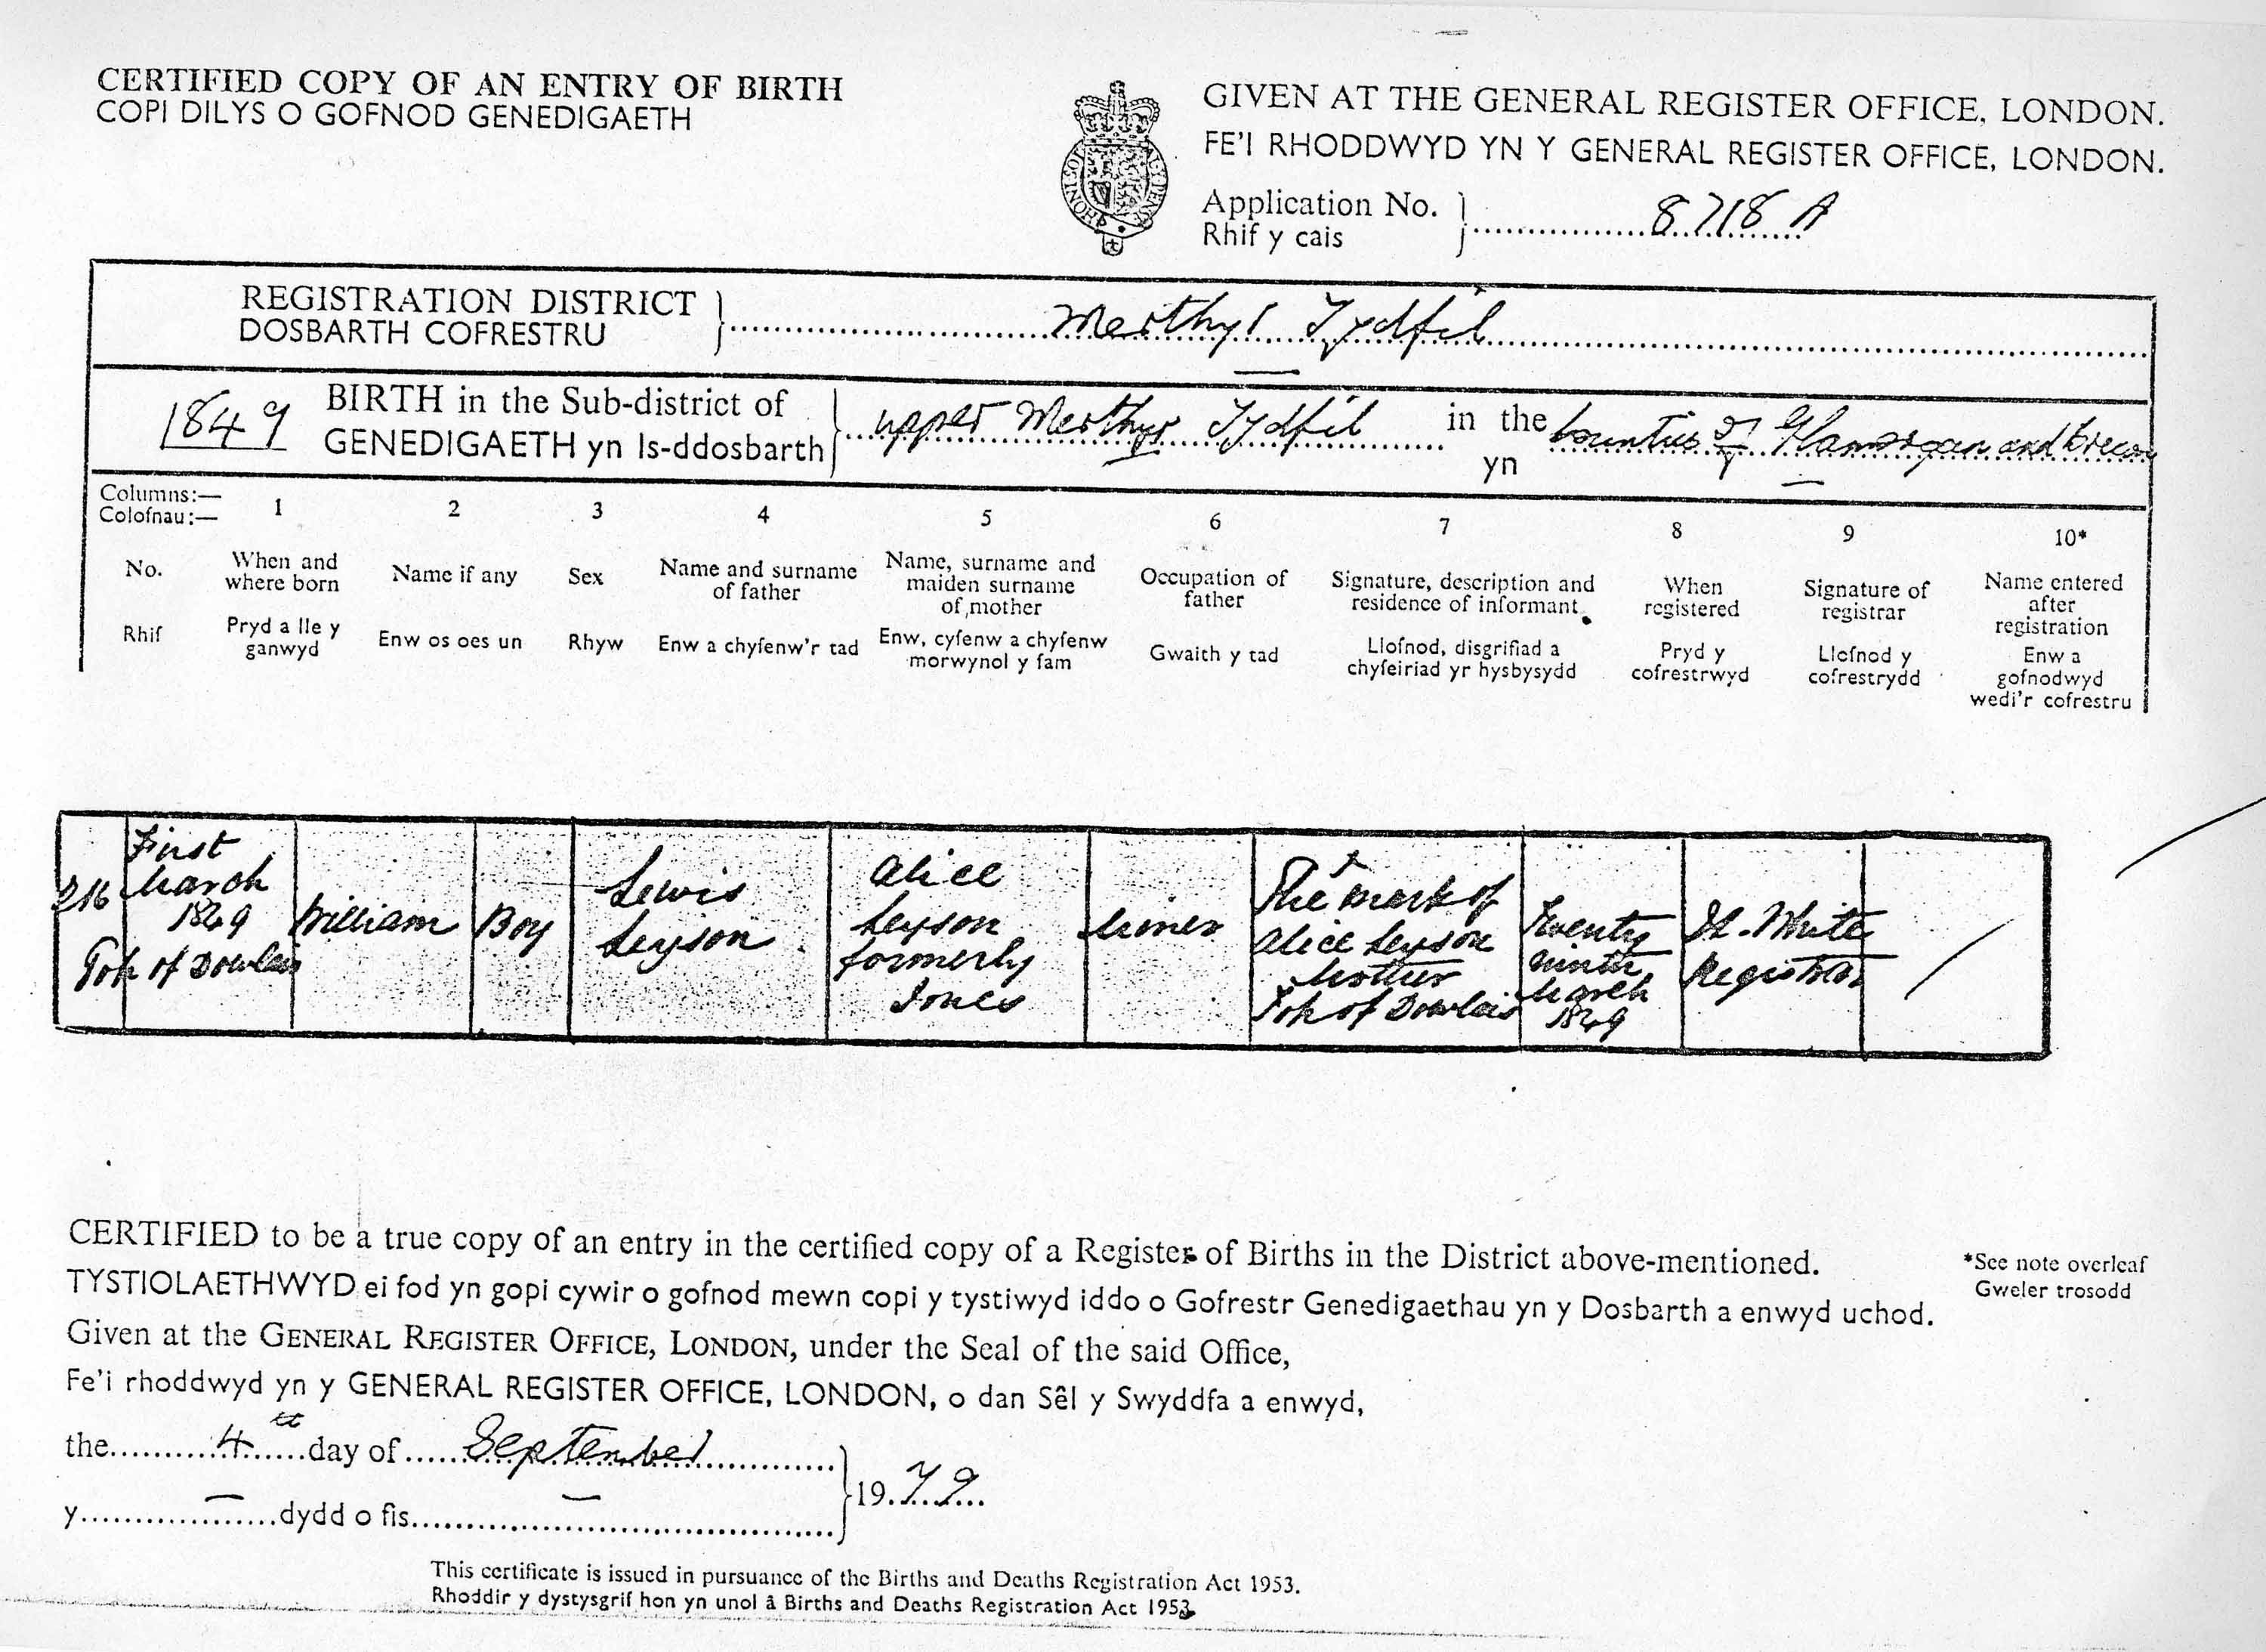 CERTIFIED COPY OF AN ENTRY OF BIRTH
COPI DILYS O GOFNOD GENEDIGAETH
GIVEN AT THE GENERAL REGISTER OFFICE, LONDON.
FE'I RHODDWYD YN Y GENERAL REGISTER OFFICE, LONDON.
Application No.
Rhif y cais
8718 A
REGISTRATION DISTRICT
DOSBARTH COFRESTRU
Merthyr Tydfil
1849
BIRTH in the Sub-district of
GENEDIGAETH yn Is-ddosbarth
upper Merthyr Tydfil
in the
yn
Counties of Glamorgan and Brecon
Columns:—
Colofnau:—
1 2 3 4 5 6 7 8 9 10*
No.
Rhif
When and
where born
Pryd a lle y
ganwyd
Name if any
Enw os oes un
Sex
Rhyw
Name and surname
of father
Enw a chyfenw'r tad
Name, surname and
maiden surname
of mother
Enw, cyfenw a chyfenw
morwynol y fam
Occupation of
father
Gwaith y tad
Signature, description and
residence of informant
Llofnod, disgrifiad a
chyfeiriad yr hysbysydd
When
registered
Pryd y
cofrestrwyd
Signature of
registrar
Llofnod y
cofrestrydd
Name entered
after
registration
Enw a
gofnodwyd
wedi'r cofrestru
216
First
March
1849
Top of Dowlais
William
Boy
Lewis
Leyson
Alice
Leyson
formerly
Jones
Miner
The mark of
Alice Leyson
Mother
Top of Dowlais
Twenty
ninth
March
1849
White
Registrar
CERTIFIED to be a true copy of an entry in the certified copy of a Register of Births in the District above-mentioned.
TYSTIOLAETHWYD ei fod yn gopi cywir o gofnod mewn copi y tystiwyd iddo o Gofrestr Genedigaethau yn y Dosbarth a enwyd uchod.
*See note overleaf
Gweler trosodd
Given at the GENERAL REGISTER OFFICE, LONDON, under the Seal of the said Office,
Fe'i rhoddwyd yn y GENERAL REGISTER OFFICE, LONDON, o dan Sêl y Swyddfa a enwyd,
the 4th day of September
1979
y dydd o fis
This certificate is issued in pursuance of the Births and Deaths Registration Act 1953.
Rhoddir y dystysgrif hon yn unol â Births and Deaths Registration Act 1953.